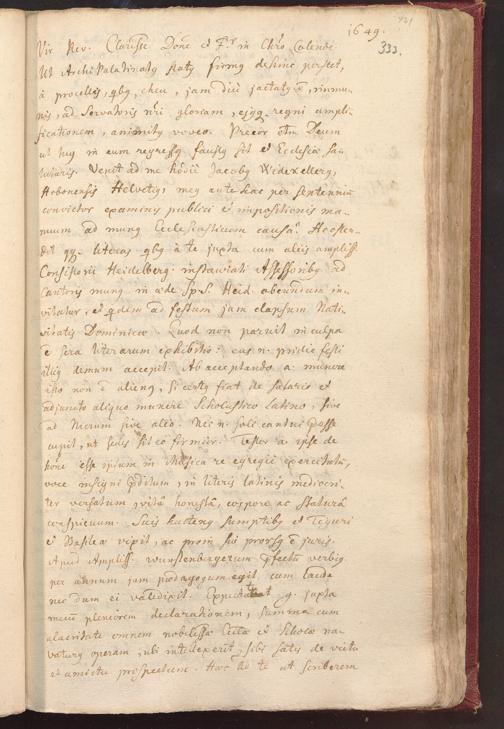 1649.
333.
Vir Rev. Clarisse Dne et Fr in Chro Colende
Ut Archi Palatinatq statq firmq desinc perstet,
à procellis, qbq, cheu, jam diu jactatq, immu-
nis, ad Servatoris nri gloriam, ejqq regni ampli-
ficationem, animitq voveo. Precor Deum
ut huj in eum regressq faustq sit et Ecclesiae sa-
lutaris. Venit ad me hodie Jacobq
Arbonensis Helvetiq, meq ante hac per septennium
convictor examinis publici et impositionis ma-
nuum ad munq Ecclesiasticum causa.
literas qbq à te juxta cum aliis ampliss.
Consistorii Heidelberg. instaurati Assessoribq ad
Cantoris munq in aede Sp. S. Heid. obeundum in-
vitatur, et qdem ad festum jam elapsum Nati-
vitatis Dominicae. Quod non paruit in culpa
ē sera literarum exhibitio: eas n. pridie festi
illiq demum accepit. Ab acceptando a. munere
isto non ē alienq, si certq fiat de salario et
adjuncto aliquo munere Scholastico Latino, sive
ad Nicrum sive alio. Nec n. soli cantui posse
cupit, ut sedes sit eo firmior. Testor a. ipse de
hōre esse ipsum in Musica re egregie exercitatum,
voce insigni pditum, in literis latinis mediocri-
ter versatum, vita honesta, corpore ac statura
conspicuum. Suis hactenq sumptibq et Tiguri
et Basileae vixit, ac proin sui prorsq ē juris.
Apud Ampliss. Wurstenbergerum pfectum
per annum jam paedagogum egit, cum laude
nec dum ei valedixit. Expectat g. juxta
mecum pleniorem declarationem, summa cum
alacritate omnem nobiliss. et Scholae na-
vaturq operam, ubi intellexerit, sibi satis de victu
et amictu prospectum. Haec ad te ut scriberem